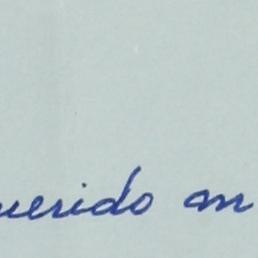 uerido am